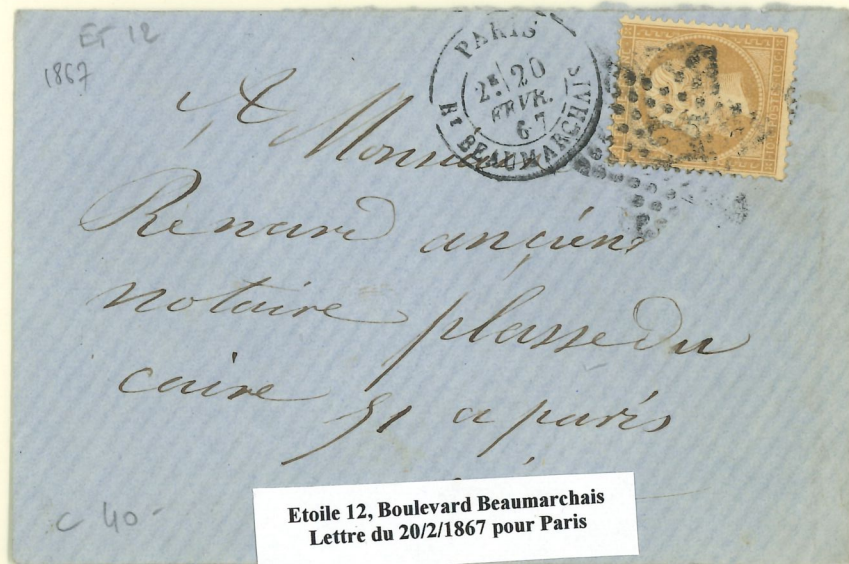 ET 12
1867
PARIS
2E/ 20
FEVR.
6-7
Bt BEAUMARCHAIS
A Monsieur
Renard ancien
notaire plasse du
caire 51 a paris
C 40-
Etoile 12, Boulevard Beaumarchais
Lettre du 20/2/1867 pour Paris